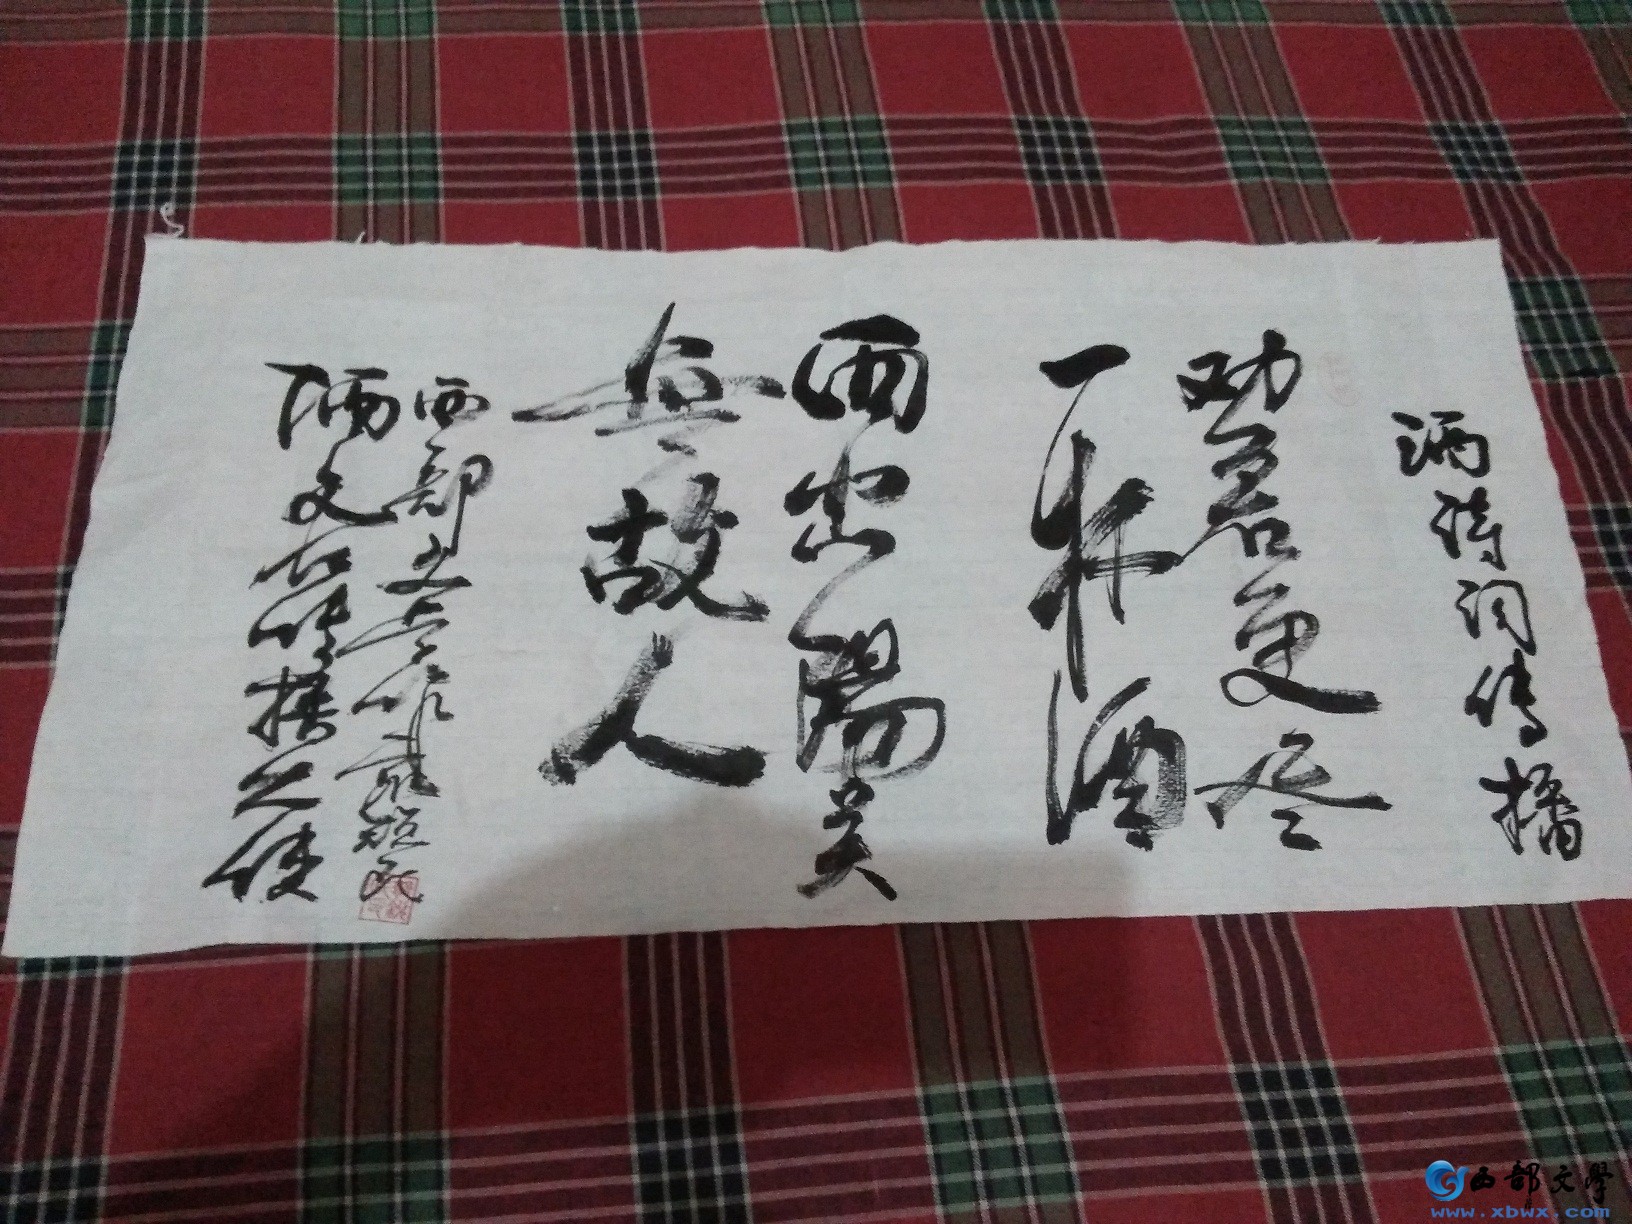 酒诗词传播
劝君更尽
一杯酒
西出陽关
無故人
西部文学作家
酒文化传播大使
西部文學
www.xbwx.com